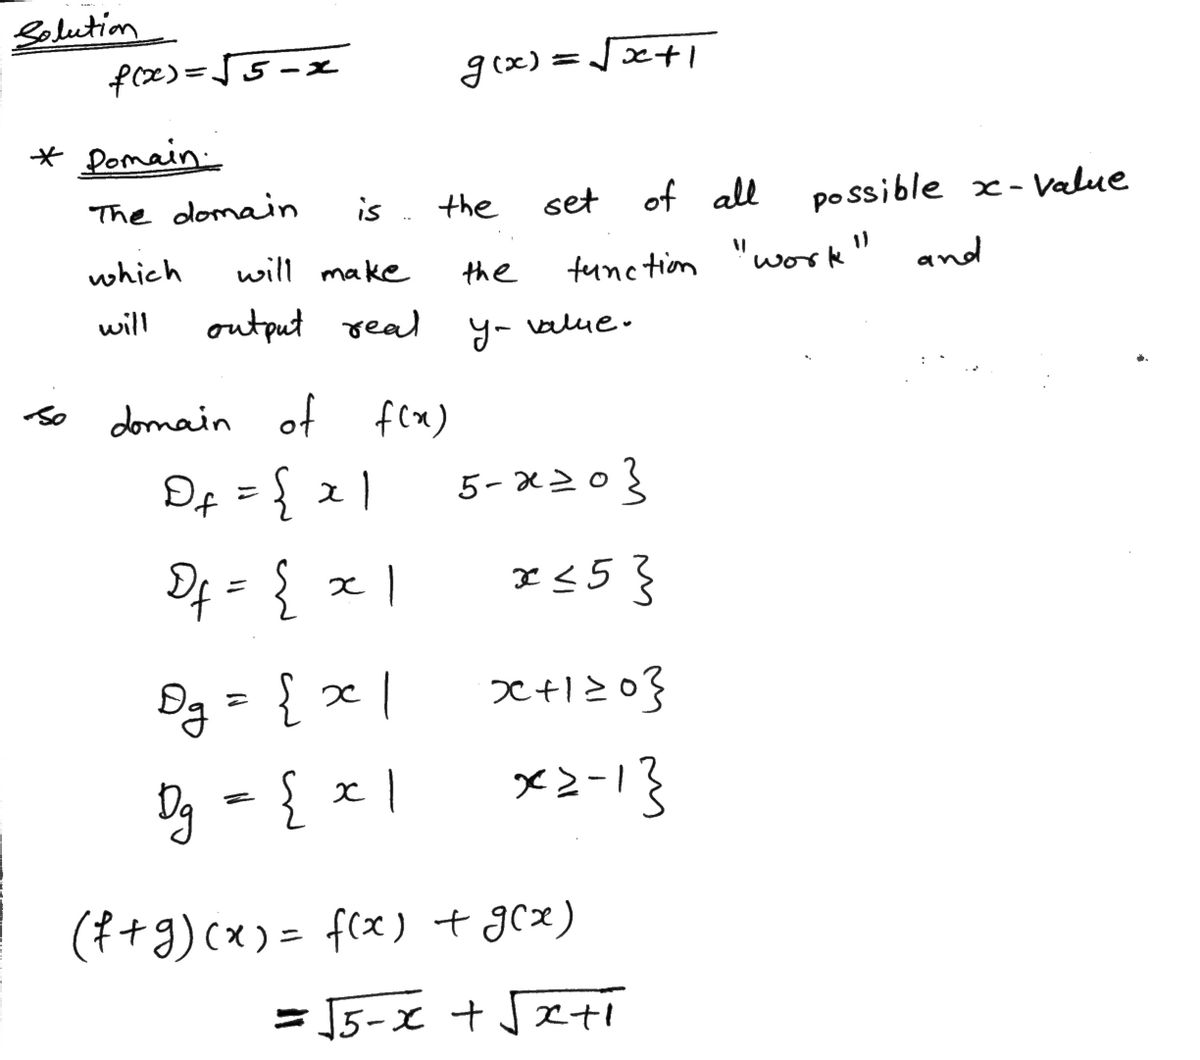 Solution
f(x) = √5-x g(x) = √x+1
* Domain:
The domain is the set of all possible x-value
which will make the function "work" and
will output real y-value.
so domain of f(x)
Df = { x | 5-x ≥ 0 }
Df = { x | x ≤ 5 }
Dg = { x | x+1 ≥ 0 }
Dg = { x | x ≥ -1 }
(f+g)(x) = f(x) + g(x)
= √5-x + √x+1